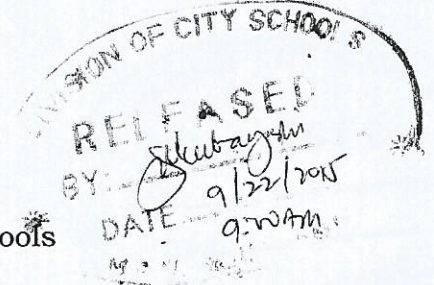 DIVISION OF CITY SCHOOLS
RELEASED
BY:
DATE 9/22/2015
9:00 AM
ools